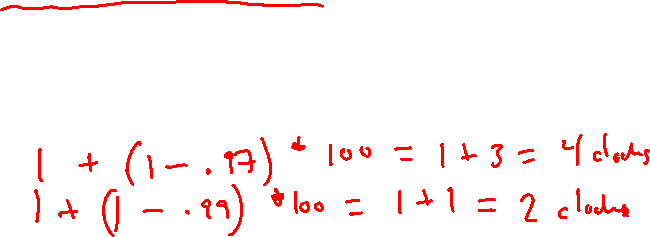 1 + (1 - .97) * 100 = 1 + 3 = 4 clocks
1 + (1 - .99) * 100 = 1 + 1 = 2 clocks